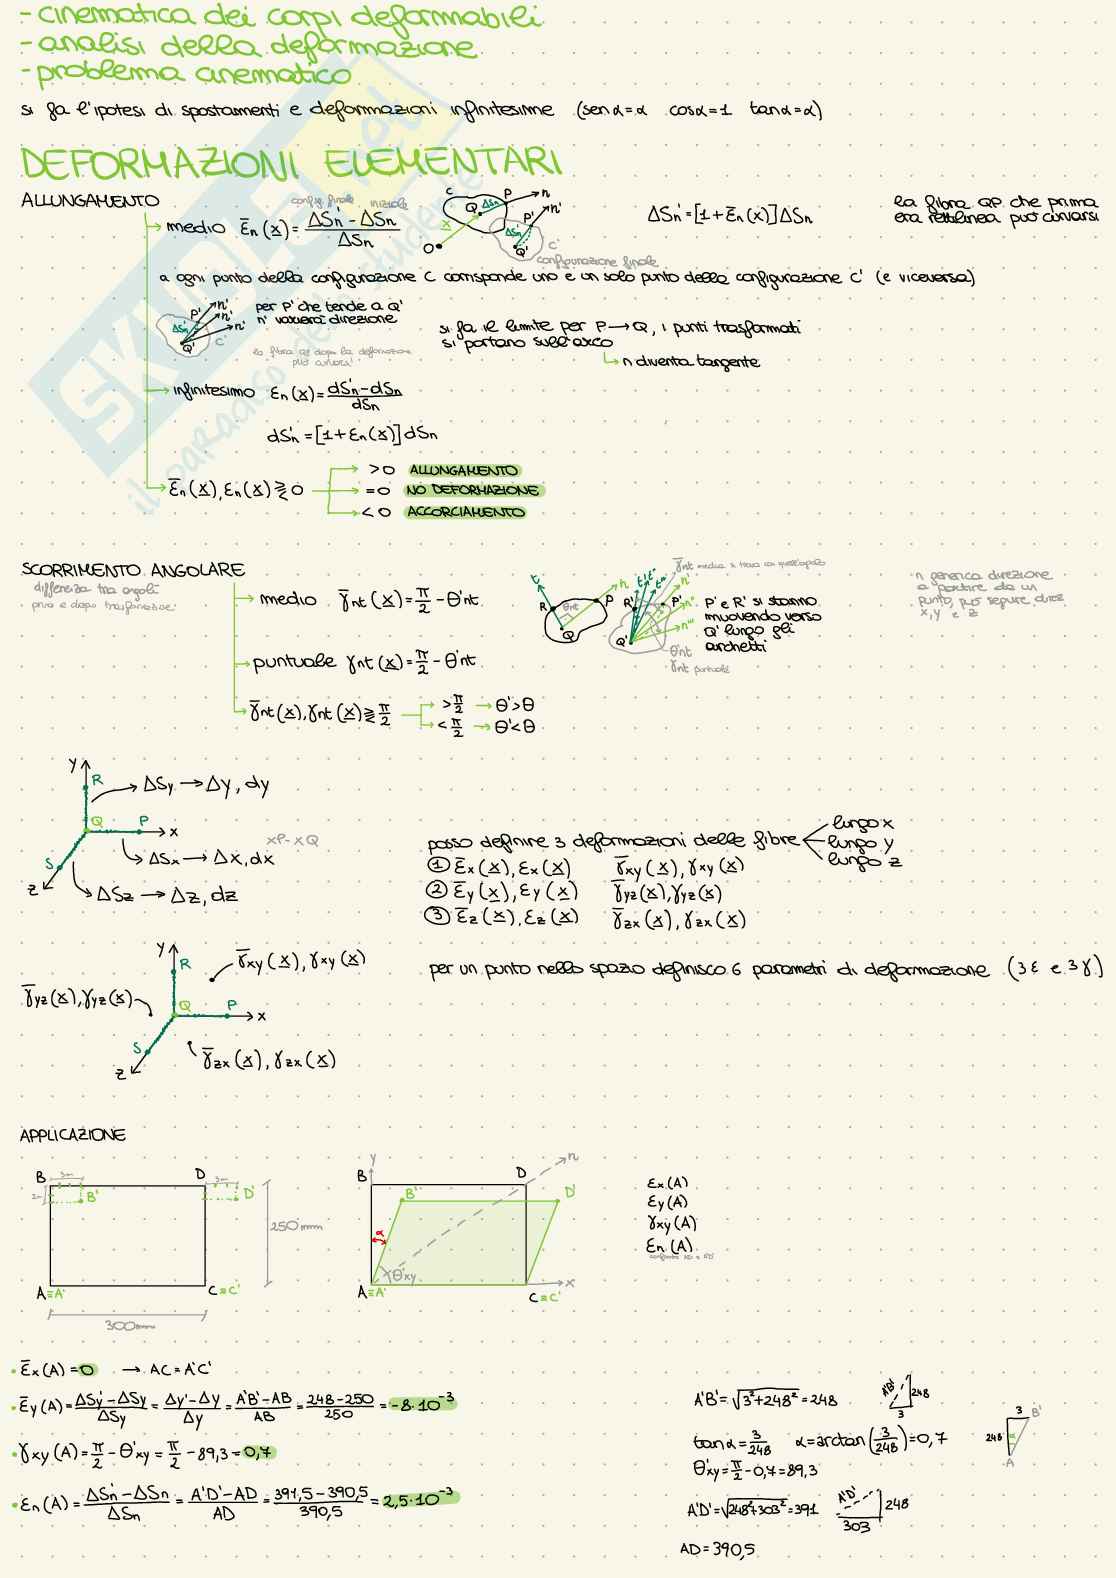 - cinematica dei corpi deformabili
- analisi della deformazione
- problema cinematico
si fa l'ipotesi di spostamenti e deformazioni infinitesime (sen α = α cos α = 1 tan α = α)
DEFORMAZIONI ELEMENTARI
ALLUNGAMENTO
config. finale iniziale
medio ε̄n(x) = ΔS'n - ΔSn / ΔSn
C Q ΔSn P n P' n' x ΔS'n O Q' C'
configurazione finale
ΔS'n = [1 + ε̄n(x)] ΔSn
la fibra QP che prima
era rettilinea può curvarsi
a ogni punto della configurazione C corrisponde uno e un solo punto della configurazione C' (e viceversa)
P' n' n' n' ΔS'n Q' C'
per P' che tende a Q'
n' varierà direzione
la fibra QP dopo la deformazione
può curvarsi
si fa il limite per P → Q, i punti trasformati
si portano sull'arco
n diventa tangente
infinitesimo εn(x) = dS'n - dSn / dSn
dS'n = [1 + εn(x)] dSn
ε̄n(x), εn(x) ⋛ 0
> 0 ALLUNGAMENTO
= 0 NO DEFORMAZIONE
< 0 ACCORCIAMENTO
SCORRIMENTO ANGOLARE
differenza tra angoli
prima e dopo trasformazione
medio γ̄nt(x) = π/2 - θ'nt
puntuale γnt(x) = π/2 - θ'nt
γ̄nt(x), γnt(x) ⋛ π/2
> π/2 → θ' > θ
< π/2 → θ' < θ
t n R P θnt Q
γ̄nt media si trova con
R' t' t'' t''' n' P' n'' n''' Q'
θ'nt
γnt puntuale
P' e R' si stanno
muovendo verso
Q' lungo gli
archetti
n generica direzione
a partire da un
punto, può seguire direz
x, y e z
y R Q P x S z
ΔSy → Δy, dy
xP - xQ
ΔSx → Δx, dx
ΔSz → Δz, dz
posso definire 3 deformazioni delle fibre
lungo x
lungo y
lungo z
① ε̄x(x), εx(x) γ̄xy(x), γxy(x)
② ε̄y(x), εy(x) γ̄yz(x), γyz(x)
③ ε̄z(x), εz(x) γ̄zx(x), γzx(x)
y R Q P x S z
γ̄xy(x), γxy(x)
γ̄yz(x), γyz(x)
γ̄zx(x), γzx(x)
per un punto nello spazio definisco 6 parametri di deformazione (3ε e 3γ)
APPLICAZIONE
B 3m D 3m
2m B' D'
250mm
A≡A' C≡C'
300mm
y n
B D
B' D'
α
θ'xy
A≡A' C≡C' x
εx(A)
εy(A)
γxy(A)
εn(A)
• ε̄x(A) = 0 → AC = A'C'
• ε̄y(A) = ΔSy' - ΔSy / ΔSy = Δy' - Δy / Δy = A'B' - AB / AB = 248 - 250 / 250 = -8·10⁻³
• γxy(A) = π/2 - θ'xy = π/2 - 89,3 = 0,7
• εn(A) = ΔS'n - ΔSn / ΔSn = A'D' - AD / AD = 391,5 - 390,5 / 390,5 = 2,5·10⁻³
A'B' = √3² + 248² = 248
A'B' 248
3
tan α = 3/248 α = arctan(3/248) = 0,7
3 B'
248 α
A
θ'xy = π/2 - 0,7 = 89,3
A'D' = √248² + 303² = 391
A'D' 248
303
AD = 390,5
SKUOLA.net
il paradiso dello studente